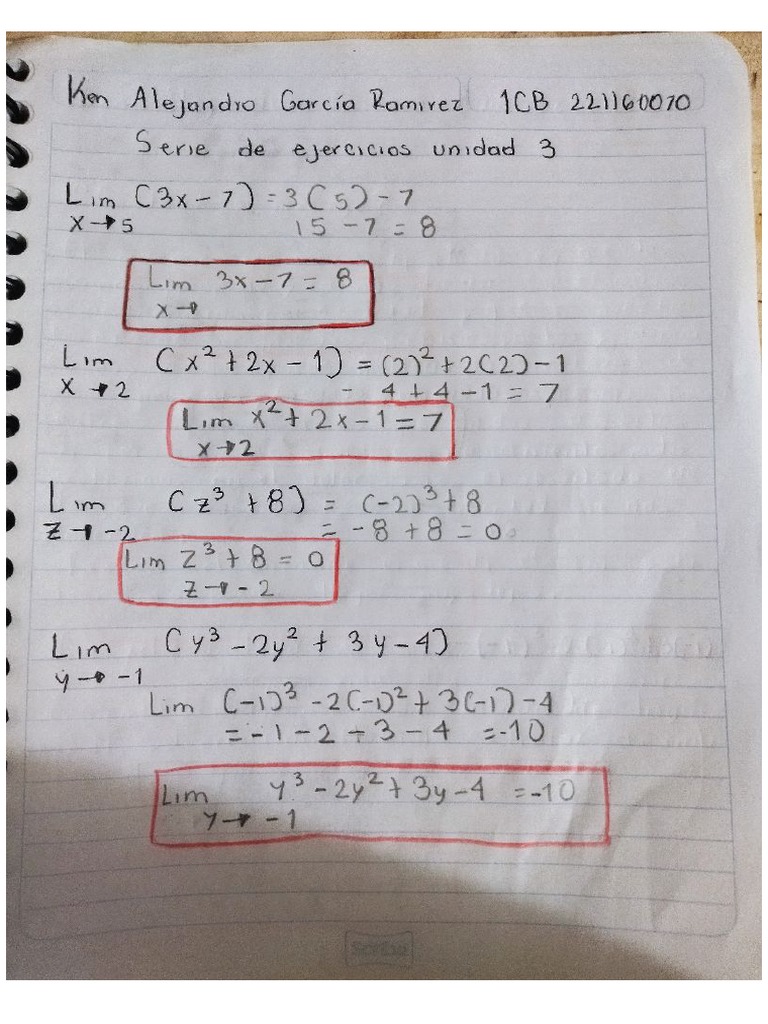 Ken Alejandro García Ramirez 1CB 221160070
Serie de ejercicios unidad 3
Lim (3x-7) = 3(5) - 7
x→5 15 - 7 = 8
Lim 3x - 7 = 8
x→
Lim (x² + 2x - 1) = (2)² + 2(2) - 1
x→2 - 4 + 4 - 1 = 7
Lim x² + 2x - 1 = 7
x→2
Lim (z³ + 8) = (-2)³ + 8
z→-2 = -8 + 8 = 0
Lim z³ + 8 = 0
z→-2
Lim (y³ - 2y² + 3y - 4)
y→-1
Lim (-1)³ - 2(-1)² + 3(-1) - 4
= -1 - 2 - 3 - 4 = -10
Lim y³ - 2y² + 3y - 4 = -10
y→-1
Scribe